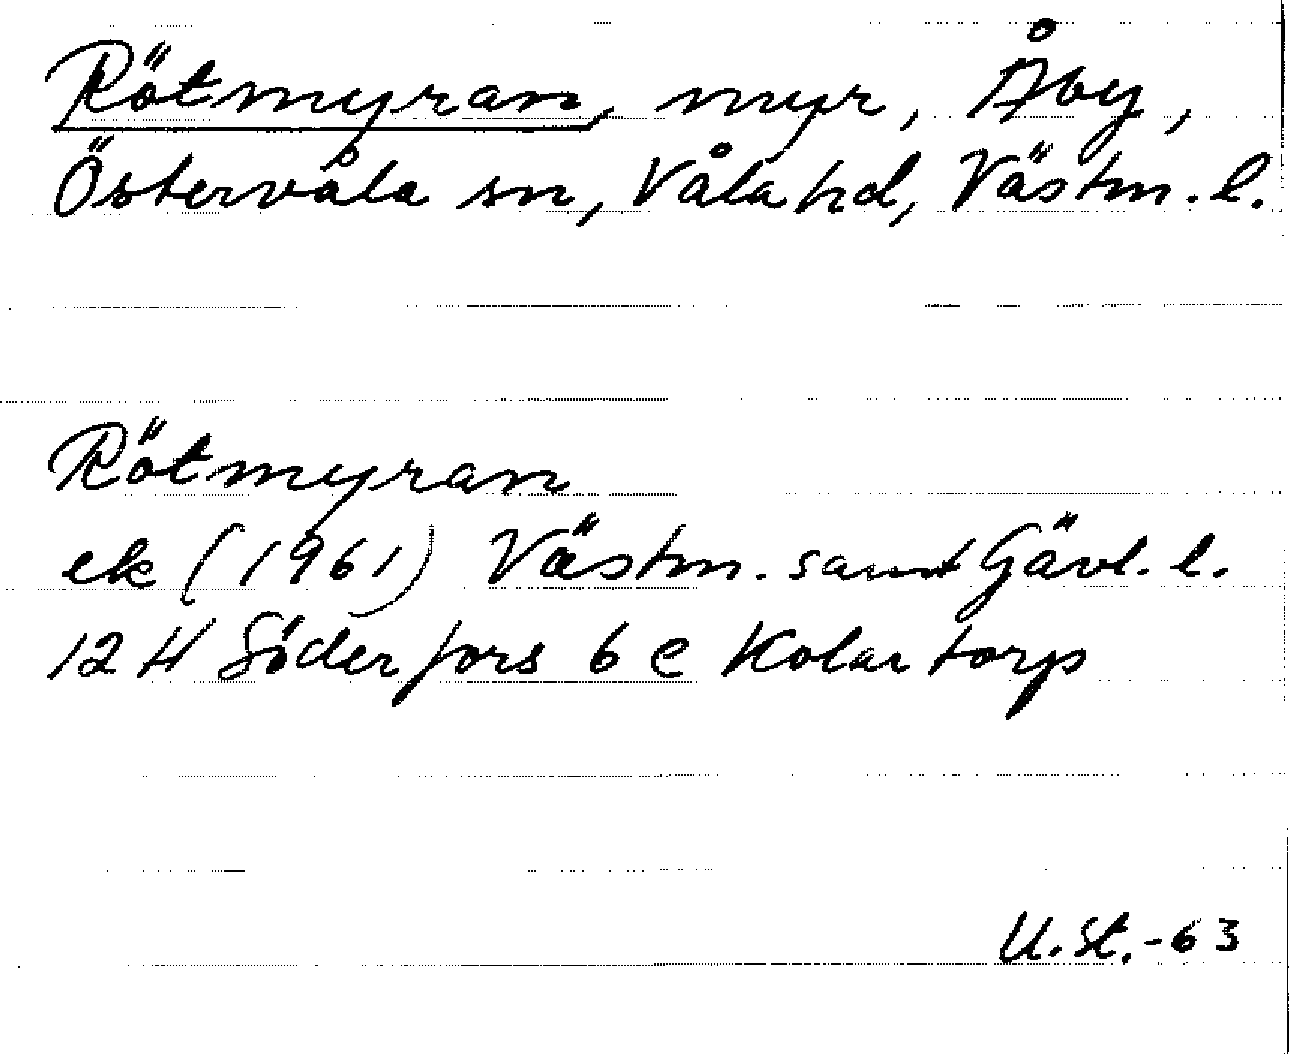 Rötmyran, myr, Åby,
Östervåla sn, Våla hd, Västm. l.
Rötmyran
ek (1961) Västm. samt Gävl. l.
12 H Söderfors 6 c Kolartorp
U.St.-63